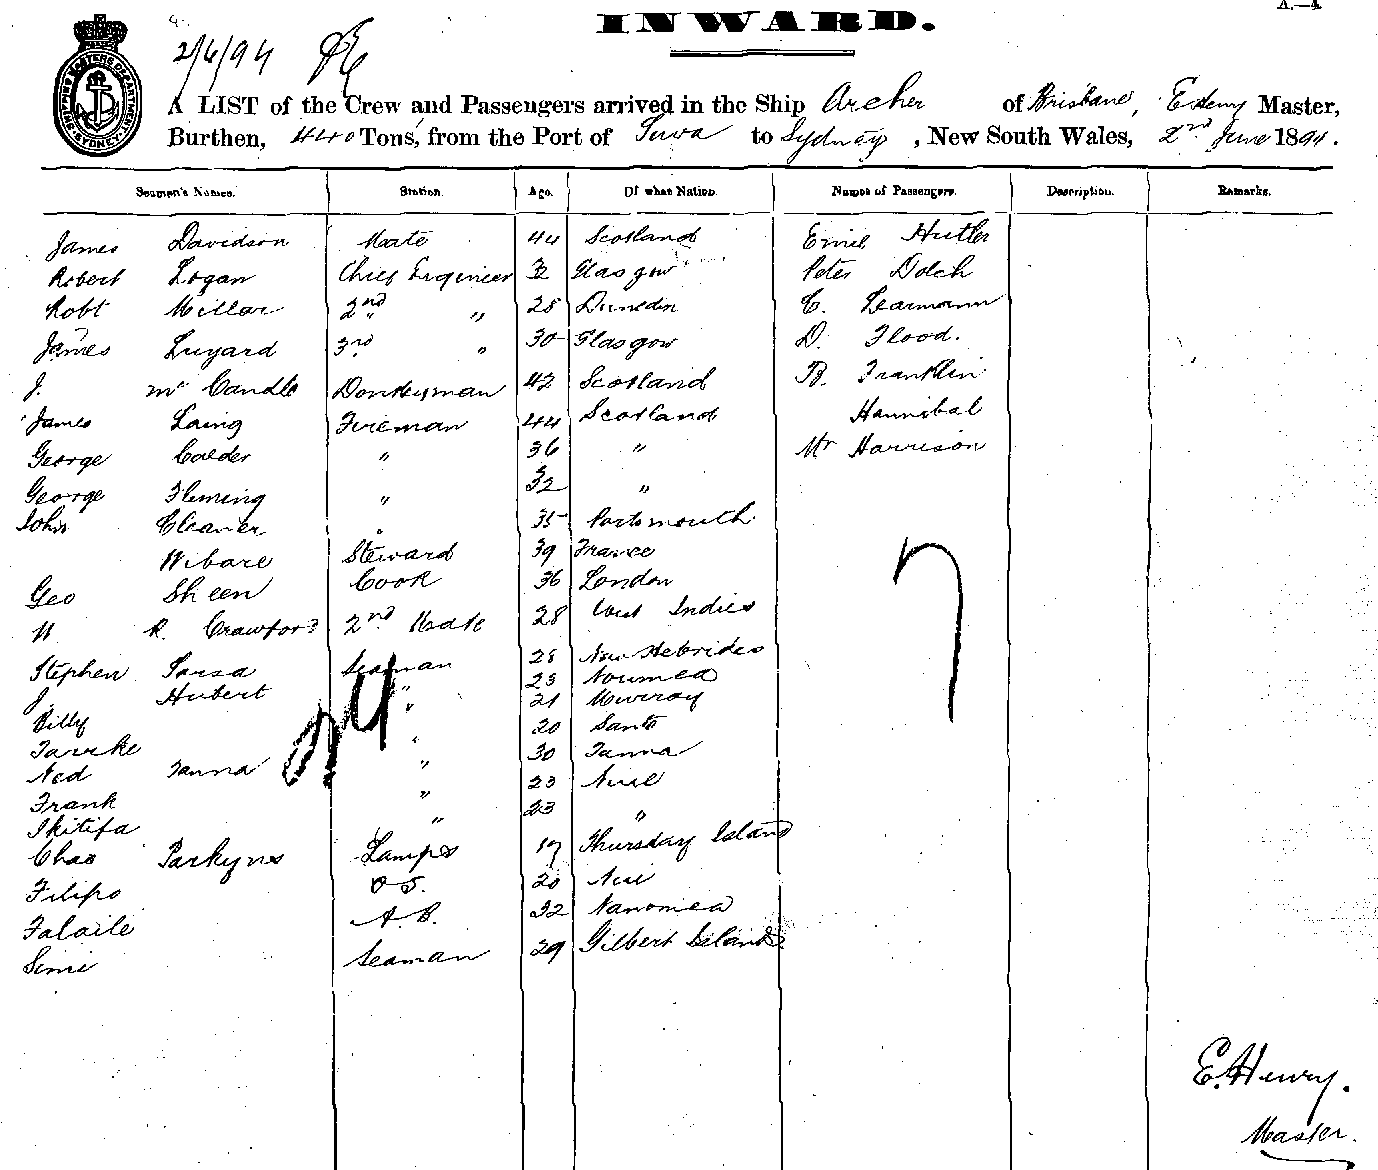 A.—4
INWARD.
2/6/94
SHIPPING MASTERS DEPARTMENT SYDNEY
A LIST of the Crew and Passengers arrived in the Ship Archer of Brisbane, E Henry Master,
Burthen, 440 Tons, from the Port of Suva to Sydney, New South Wales, 2nd June 1894.
Seamen's Names. Station. Age. Of what Nation. Names of Passengers. Description. Remarks.
James Davidson Mate 44 Scotland Emil Hutler
Robert Logan Chief Engineer 32 Glasgow Peter Dolch
Robt Millar 2nd " 28 Dunedin C. Learmann
James Luyard 3rd " 30 Glasgow D. Flood.
J. McCandle Donkeyman 42 Scotland B. Franklin
James Laing Fireman 44 Scotland Hannibal
George Calder " 36 " Mr Harrison
George Fleming " 32 "
John Cleaner " 35 Portsmouth
Wibare Steward 39 France
Geo Sheen Cook 36 London
W R. Crawford 2nd Mate 28 West Indies
Stephen Sarsa Seaman 28 New Hebrides
J. Hubert " 23 Noumea
Billy " 21 Murray
Tarrke " 20 Santo
Ned Tanna " 30 Tanna
Frank " 23 Niue
Ikitifa " 23 "
Chas Parkyns Lamps 17 Thursday Island
Filipo O S. 20 Niue
Falaile A. B. 32 Nanomea
Simi Seaman 29 Gilbert Islands
24
7
E. Henry.
Master.